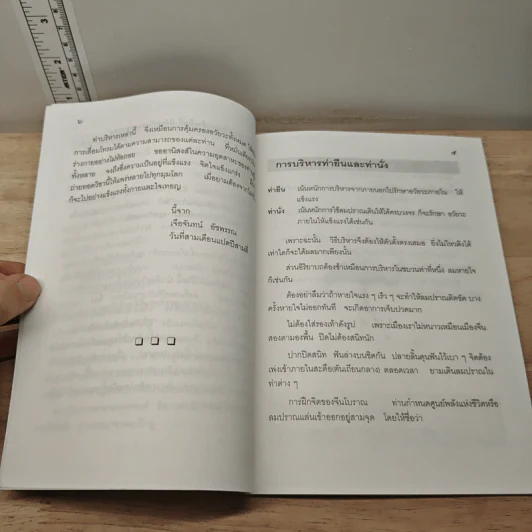 ๖
ท่าบริหารเหล่านี้ จึงเหมือนการคุ้มครองอวัยวะทั้งหมด
การเสื่อมโทรมได้ตามความสามารถของแต่ละท่าน ที่หมั่นฝึก
ร่างกายอย่างไม่ท้อถอย ขออานิสงส์ในความอุตสาหะของ
ทั้งหลาย จงถึงซึ่งความเป็นอยู่ที่แข็งแรง จิตใจแกร่ง
ถ่ายทอดวิชานี้ให้แพร่หลายไปทุกมุมโลก เมื่อยามต้องจาก
ก็จะไปอย่างแข็งแรงทั้งกายและใจเทอญ
นี้จาก
เจือจันทน์ อัชพรรณ
วันที่สามเดือนแปดปีสามสี่
๗
การบริหารท่ายืนและท่านั่ง
ท่ายืน เน้นหนักการบริหารจากภายนอกไปรักษาอวัยวะภายใน ให้
แข็งแรง
ท่านั่ง เน้นหนักการใช้ลมปราณเดินให้ได้ครบวงจร ก็จะรักษา อวัยวะ
ภายในให้แข็งแรงได้เช่นกัน
เพราะฉะนั้น วิธีบริหารจึงต้องให้ตัวตั้งตรงเสมอ ยิ่งไม่ไหวติงได้
เท่าใดก็จะได้ผลมากเพียงนั้น
ส่วนอิริยาบถต้องช้าเหมือนการบริหารในขบวนท่าที่หนึ่ง ลมหายใจ
ก็เช่นกัน
ต้องอย่าลืมว่าถ้าหายใจแรง ๆ เร็ว ๆ จะทำให้ลมปราณติดขัด บาง
ครั้งหายใจไม่ออกทันที จะเกิดอาการเจ็บปวดมาก
ไม่ต้องใส่รองเท้าดังรูป เพราะเมืองเราไม่หนาวเหมือนเมืองจีน
สองตามองพื้น ปิดไม่ต้องสนิทนัก
ปากปิดสนิท ฟันล่างบนชิดกัน ปลายลิ้นดุนฟันไว้เบา ๆ จิตต้อง
เพ่งเข้าภายในสะดือ(ตันเถียนกลาง) ตลอดเวลา ยามเดินลมปราณใน
ท่าต่าง ๆ
การฝึกจิตของจีนโบราณ ท่านกำหนดศูนย์พลังแห่งชีวิตหรือ
ลมปราณแล่นเข้าออกอยู่สามจุด โดยให้ชื่อว่า